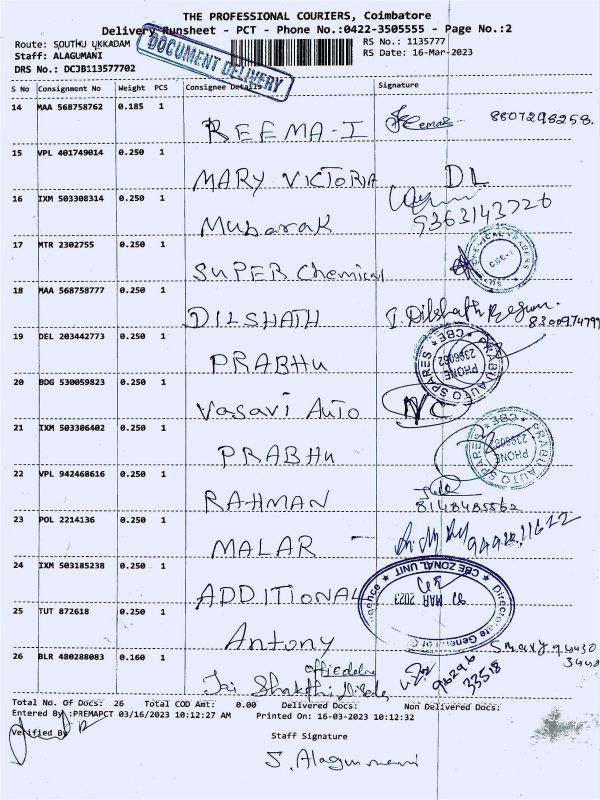 THE PROFESSIONAL COURIERS, Coimbatore
Delivery Runsheet - PCT - Phone No.:0422-3505555 - Page No.:2
Route: SOUTHU UKKADAM RS No.: 1135777
Staff: ALAGUMANI RS Date: 16-Mar-2023
DRS No.: DCJB113577702
DOCUMENT DELIVERY
S No Consignment No Weight PCS Consignee Details Signature
14 MAA 568758762 0.185 1
REEMA-I Reema 8807298258.
15 VPL 401749014 0.250 1
MARY VICTORIA DL
16 IXM 503308314 0.250 1
Mubarak 9363143726
17 MTR 2302755 0.250 1
SUPER Chemical
18 MAA 568758777 0.250 1
DILSHATH J. Dilshath Begum.
8300974799
19 DEL 203442773 0.250 1
PRABHU PRABU AUTO SPARES CBE PHONE
20 BDG 530059823 0.250 1
Vasavi Auto NC
21 IXM 503306402 0.250 1
PRABHU PRABU AUTO SPARES CBE PHONE
22 VPL 942468616 0.250 1
RAHMAN 8148485562
23 POL 2214136 0.250 1
MALAR
24 IXM 503185238 0.250 1
ADDITIONAL CBE ZONAL UNIT MAR 2023 Directorate General of
25 TUT 872618 0.250 1
Antony
26 BLR 480288083 0.160 1
Jai Shakthi 98296 33518
Total No. Of Docs: 26 Total COD Amt: 0.00 Delivered Docs: Non Delivered Docs:
Entered By :PREMAPCT 03/16/2023 10:12:27 AM Printed On: 16-03-2023 10:12:32
Verified By Staff Signature
S. Alagumani